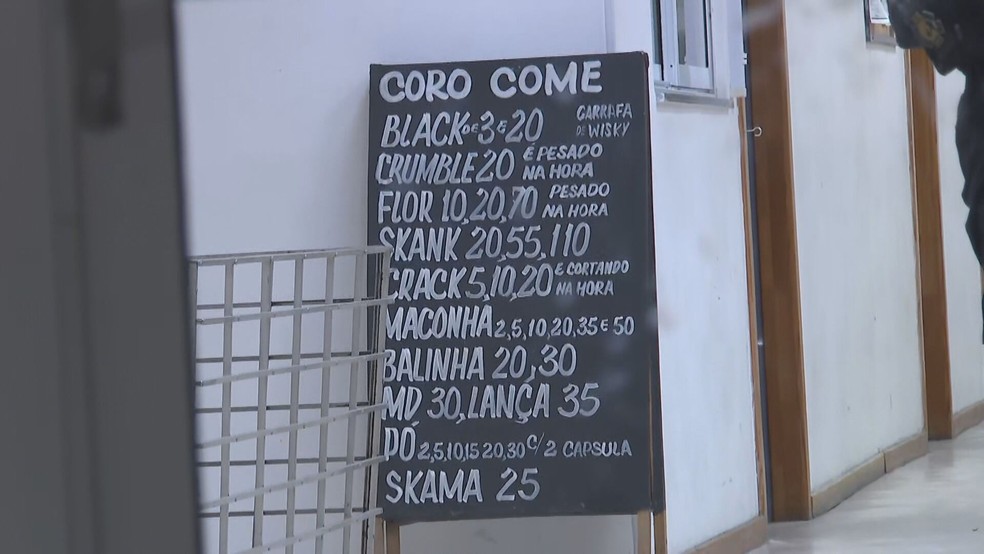 CORO COME
BLACK DE 3 E 20 GARRAFA DE WISKY
CRUMBLE 20 É PESADO NA HORA
FLOR 10, 20, 70 PESADO NA HORA
SKANK 20, 55, 110
CRACK 5, 10, 20 E CORTANDO NA HORA
MACONHA 2, 5, 10, 20, 35 E 50
BALINHA 20, 30
MD 30, LANÇA 35
PÓ 2, 5, 10, 15 20, 30 C/ 2 CAPSULA
SKAMA 25